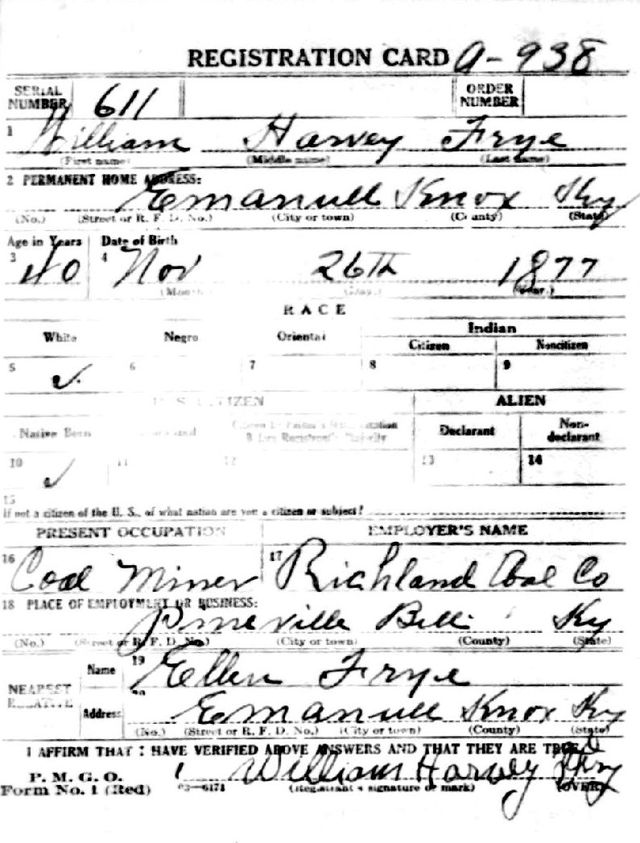 REGISTRATION CARD A-938
SERIAL NUMBER 611 ORDER NUMBER
1 William Harvey Frye
(First name) (Middle name) (Last name)
2 PERMANENT HOME ADDRESS:
Emanuell Knox Ky
(No.) (Street or R. F. D. No.) (City or town) (County) (State)
Age in Years Date of Birth
3 40 4 Nov 26th 1877
(Month) (Day.) (Year.)
RACE
White Negro Oriental Indian
Citizen Noncitizen
5 ✓ 6 7 8 9
U. S. CITIZEN ALIEN
Native Born Citizen by Father's Naturalization Before Registrant's Majority Declarant Non-declarant
10 ✓ 11 12 13 14
15
If not a citizen of the U. S., of what nation are you a citizen or subject?
PRESENT OCCUPATION EMPLOYER'S NAME
16 Coal Miner 17 Richland Coal Co
18 PLACE OF EMPLOYMENT OR BUSINESS:
Pineville Bell Ky
(No.) (Street or R. F. D. No.) (City or town) (County) (State)
NEAREST RELATIVE Name 19 Ellen Frye
Address 20 Emanuell Knox Ky
(No.) (Street or R. F. D. No.) (City or town) (County) (State)
I AFFIRM THAT I HAVE VERIFIED ABOVE ANSWERS AND THAT THEY ARE TRUE
P. M. G. O.
Form No. 1 (Red) 03—6171 William Harvey
(Registrant's signature or mark) (OVER)